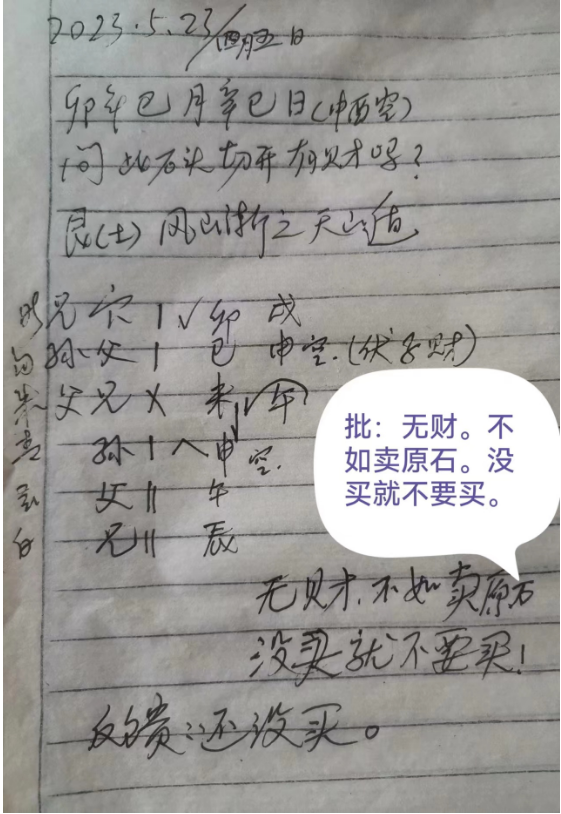 2023.5.23/四月初五日
卯年巳月辛巳日(申酉空)
问此石头切开有财吗?
艮(土) 风山渐之天山遁
兄官1√卯 戌
孙父1 巳 申空.(伏子财)
父兄X 未√午
孙1 申空.
父11 午
兄11 辰
批：无财。不
如卖原石。没
买就不要买。
无财.不如卖原石
没买就不要买!
反馈:还没买。